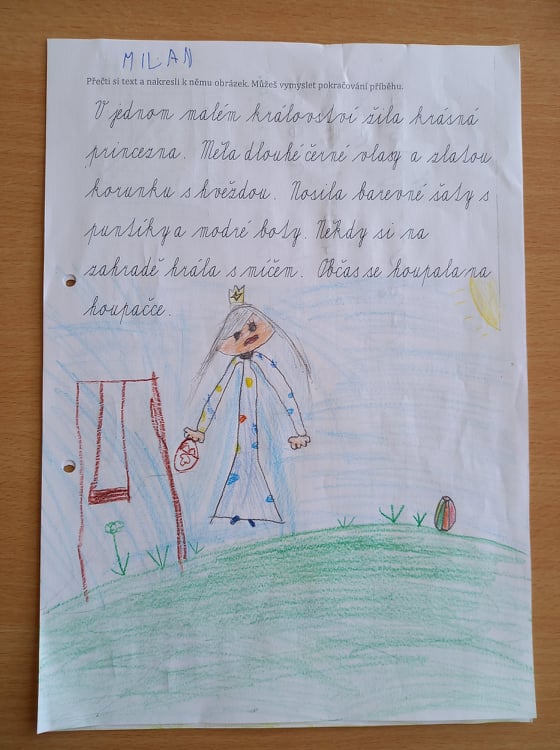 MILAN
Přečti si text a nakresli k němu obrázek. Můžeš vymyslet pokračování příběhu.
V jednom malém království žila krásná
princezna. Měla dlouhé černé vlasy a zlatou
korunku s hvězdou. Nosila barevné šaty s
puntíky a modré boty. Někdy si na
zahradě hrála s míčem. Občas se houpala na
houpačce.